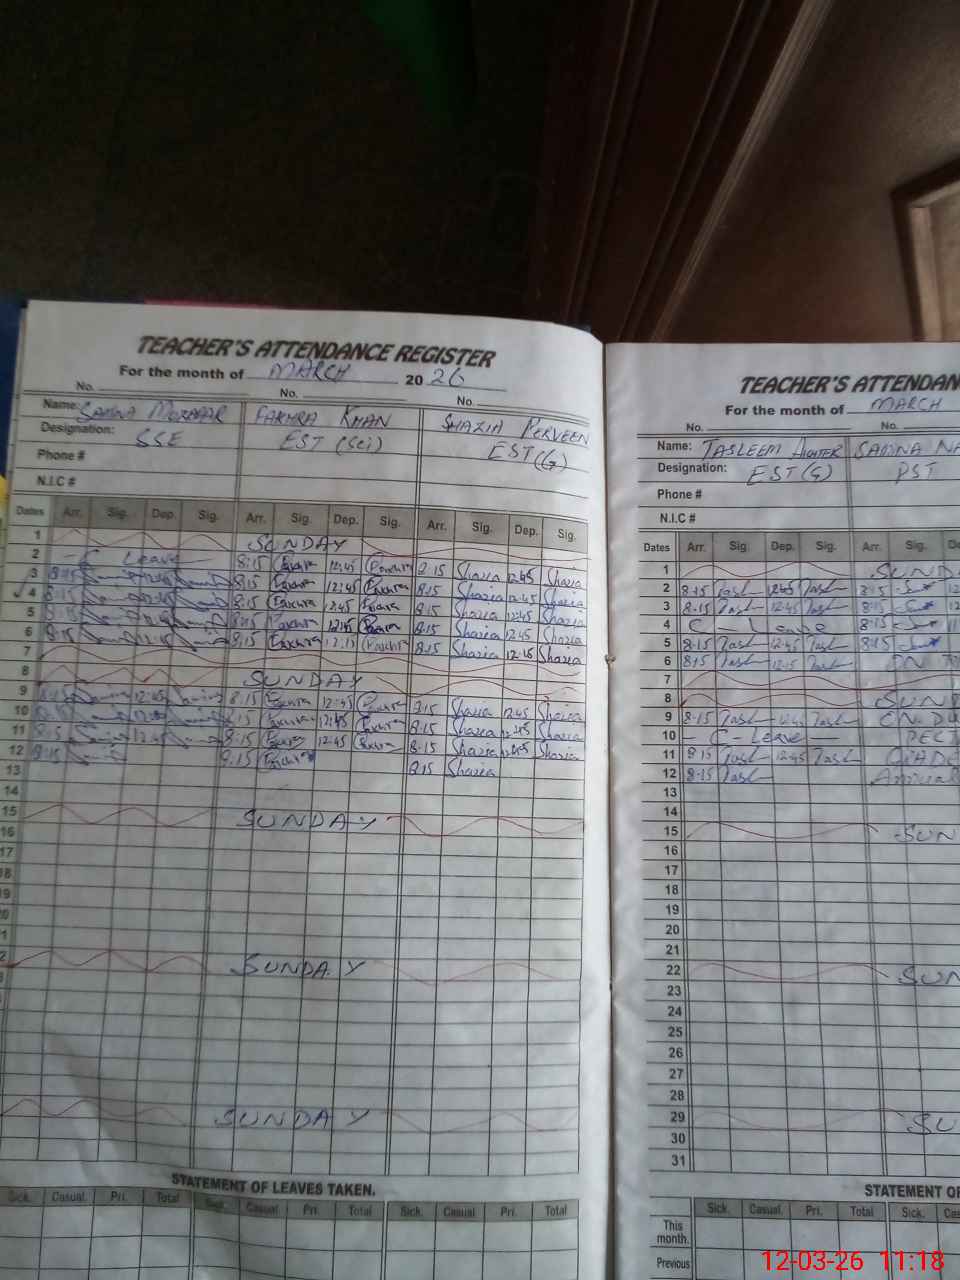 TEACHER'S ATTENDANCE REGISTER
For the month of MARCH 2026
No. No. No.
Name: SAMINA MUZAFFAR FAKHRA KHAN SHAZIA PERVEEN
Designation: SSE EST (Sci) EST (G)
Phone #
N.I.C #
Dates Arr. Sig. Dep. Sig. Arr. Sig. Dep. Sig. Arr. Sig. Dep. Sig.
1 SUNDAY
2 C Leave 8:15 Fakhra 12:45 Fakhra 8:15 Shazia 12:45 Shazia
3 8:15 12:45 8:15 Fakhra 12:45 Fakhra 8:15 Shazia 12:45 Shazia
4 8:15 12:45 8:15 Fakhra 12:45 Fakhra 8:15 Shazia 12:45 Shazia
5 8:15 12:45 8:15 Fakhra 12:45 Fakhra 8:15 Shazia 12:45 Shazia
6 8:15 12:15 8:15 Fakhra 12:15 Fakhra 8:15 Shazia 12:15 Shazia
7
8 SUNDAY
9 8:15 12:45 8:15 Fakhra 12:45 Fakhra 8:15 Shazia 12:45 Shazia
10 8:15 12:45 8:15 Fakhra 12:45 Fakhra 8:15 Shazia 12:45 Shazia
11 8:15 12:45 8:15 Fakhra 12:45 Fakhra 8:15 Shazia 12:45 Shazia
12 8:15 8:15 Fakhra 8:15 Shazia
13
14
15 SUNDAY
16
17
18
19
20
21
22 SUNDAY
SUNDAY
STATEMENT OF LEAVES TAKEN.
Sick. Casual. Pri. Total Sick. Casual. Pri. Total Sick. Casual. Pri. Total
TEACHER'S ATTENDAN
For the month of MARCH
No. No.
Name: TASLEEM AKHTER SAMINA NA
Designation: EST (G) PST
Phone #
N.I.C #
Dates Arr. Sig. Dep. Sig. Arr. Sig. De
1 SUND
2 8:15 Tasl 12:45 Tasl 8:15
3 8:15 Tasl 12:45 Tasl 8:15
4 C - Leave 8:15
5 8:15 Tasl 12:45 Tasl 8:15
6 8:15 Tasl 12:15 Tasl ON
7
8 SUND
9 8:15 Tasl 12:45 Tasl ON DU
10 C - Leave
11 8:15 Tasl 12:45 Tasl
12 8:15 Tasl
13
14
15 SUN
16
17
18
19
20
21
22 SUN
23
24
25
26
27
28
29 SU
30
31
STATEMENT OF
Sick. Casual. Pri. Total Sick. Cas
This month.
Previous
12-03-26 11:18